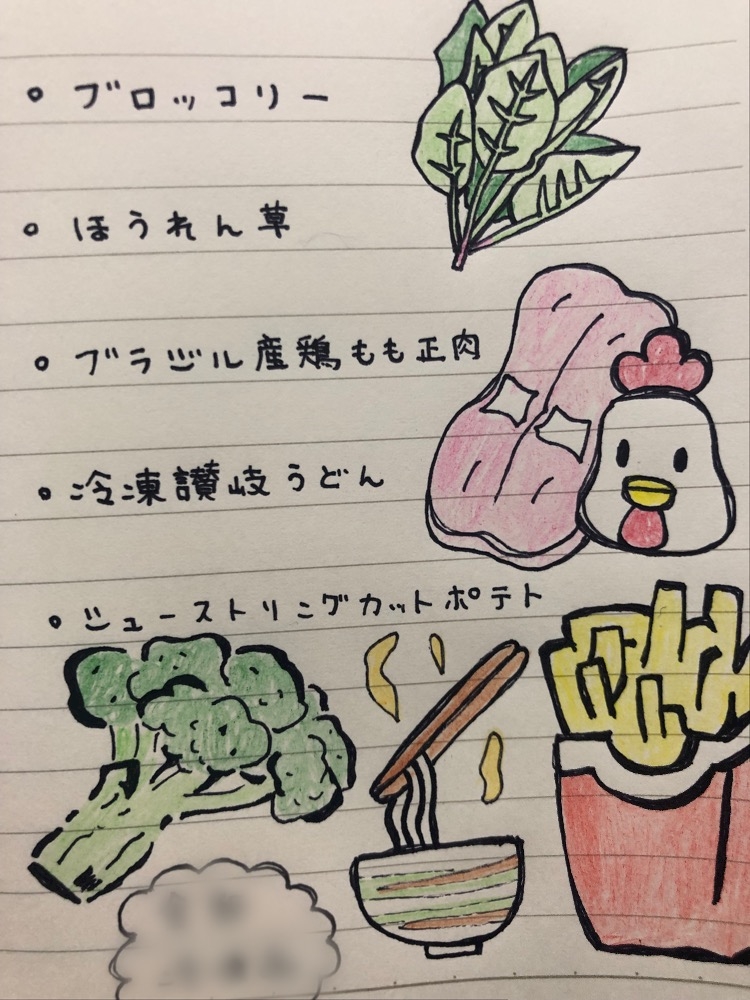 ・ブロッコリー
・ほうれん草
・ブラジル産鶏もも正肉
・冷凍讃岐うどん
・シューストリングカットポテト